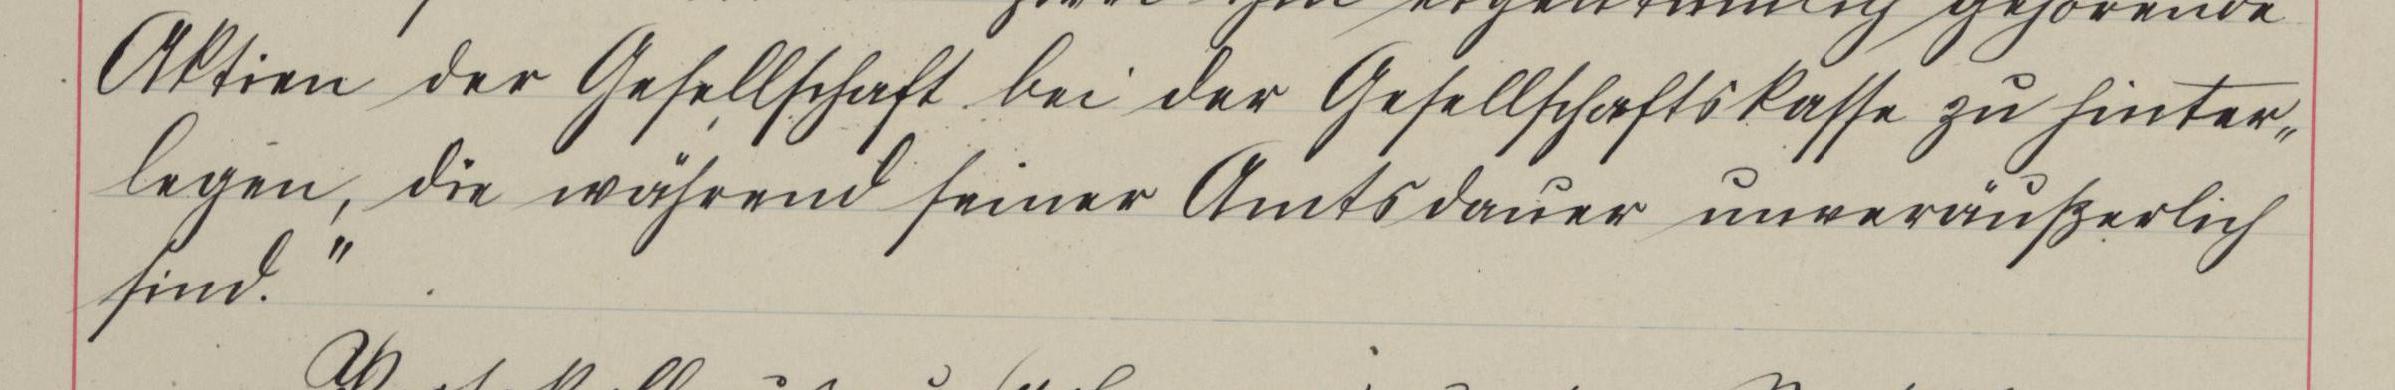 ihm eigentümlich gehörende
Aktien der Gesellschaft bei der Gesellschaftskasse zu hinter„
legen, die während seiner Amtsdauer unveräußerlich
sind."